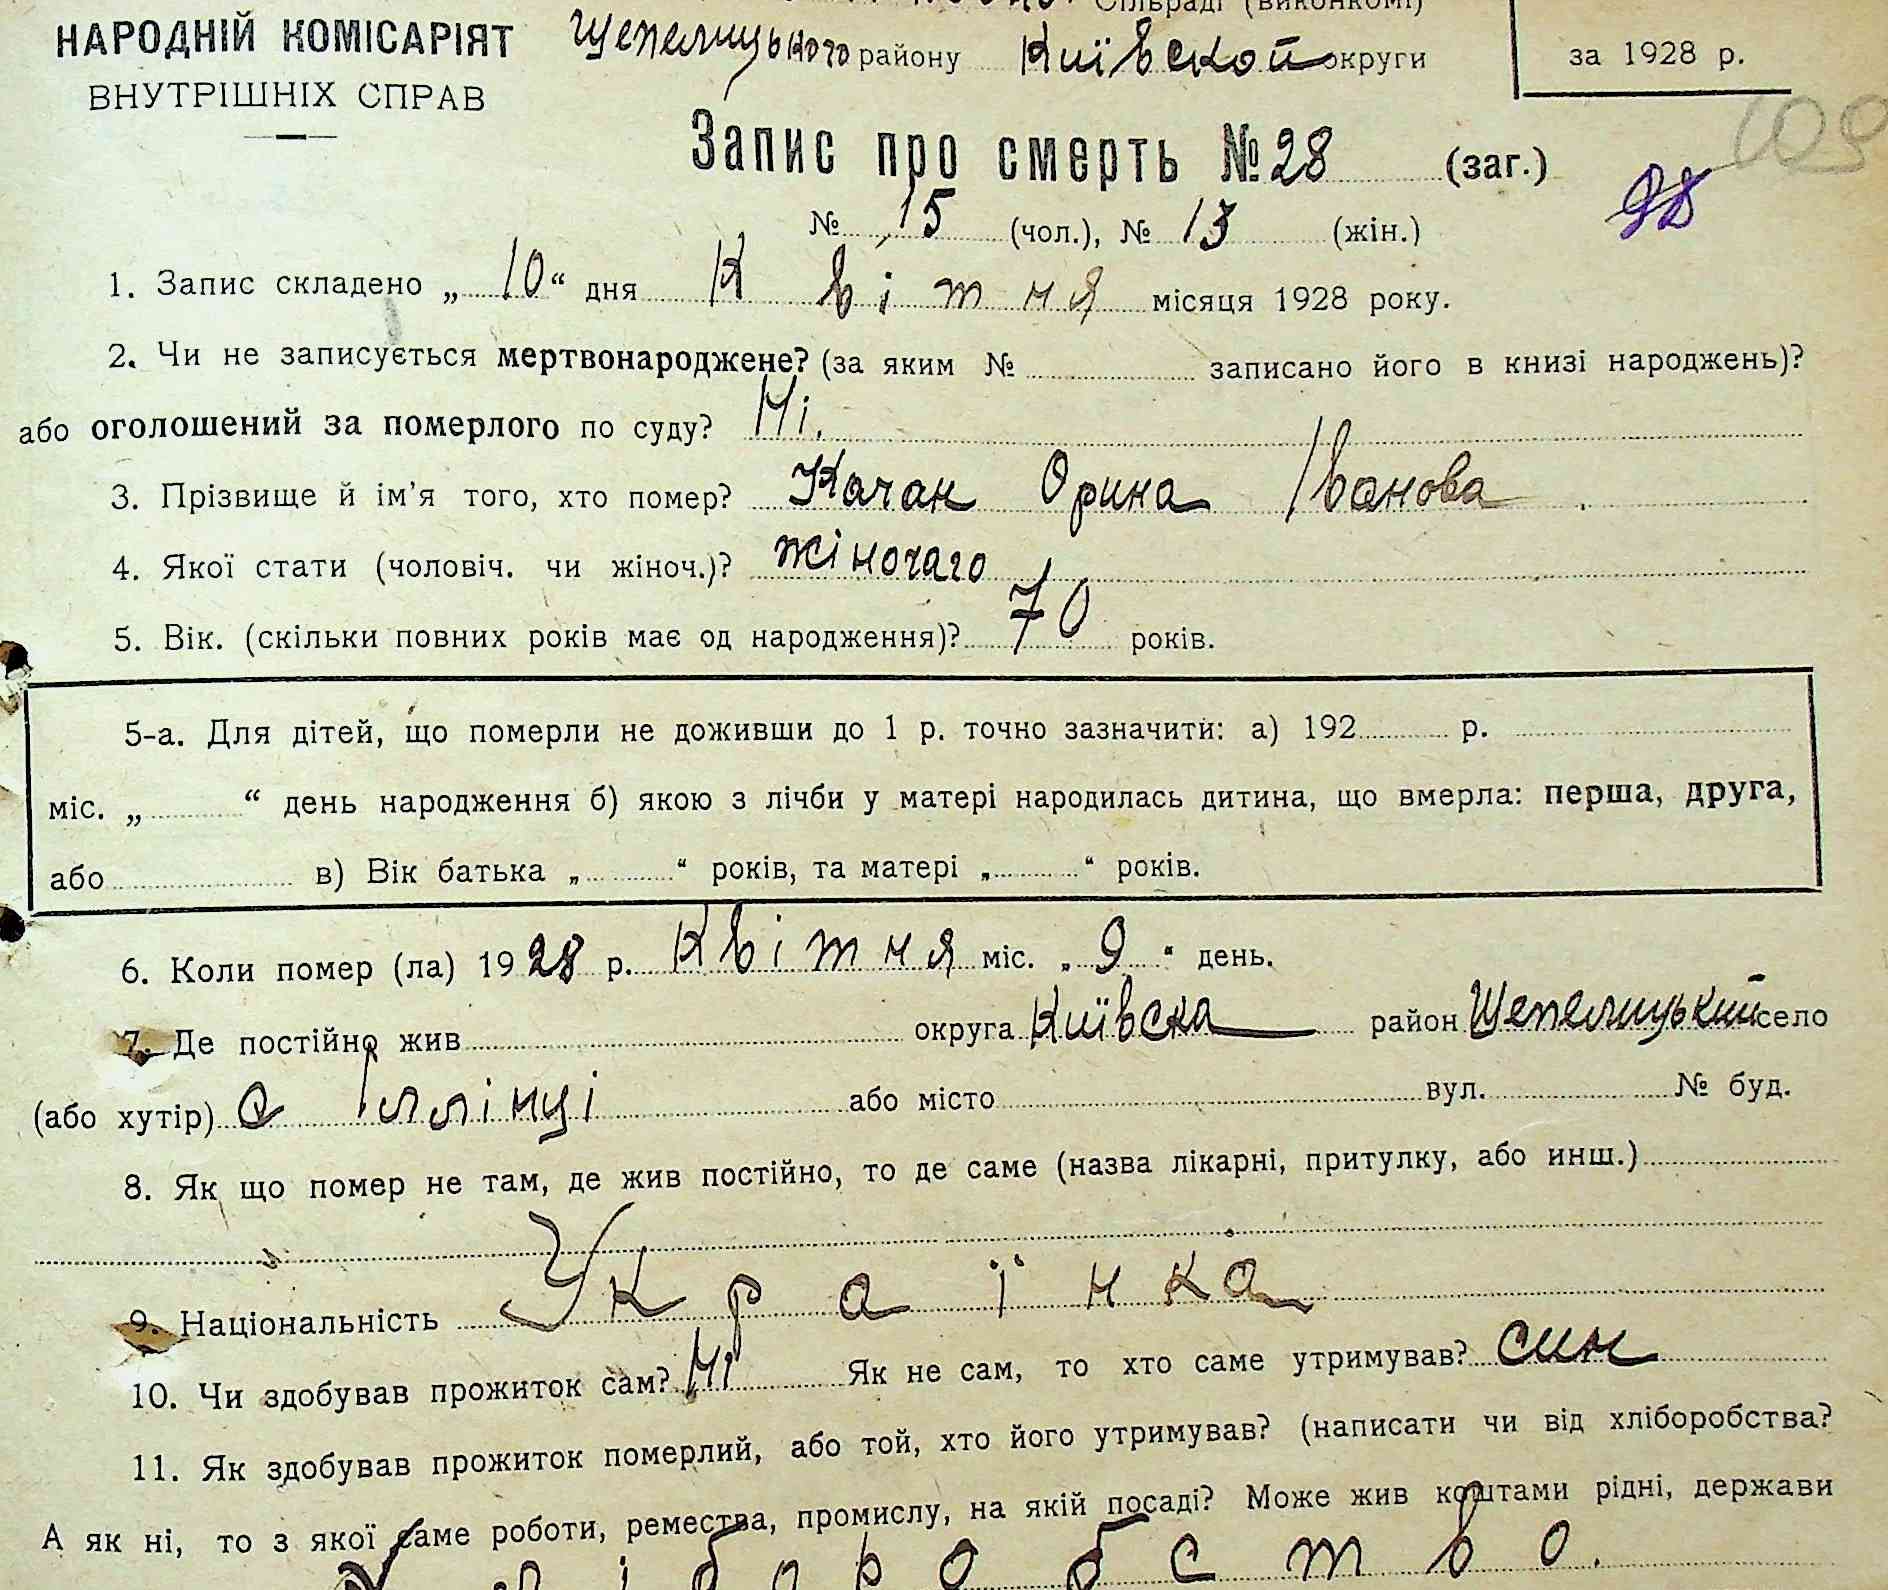 Сільраді (виконкомі)
НАРОДНІЙ КОМІСАРІЯТ
ВНУТРІШНІХ СПРАВ
Шепелицького району Київской округи
за 1928 р.
109
98
Запис про смерть № 28 (заг.)
№ 15 (чол.), № 13 (жін.)
1. Запис складено „10“ дня Квітня місяця 1928 року.
2. Чи не записується мертвонароджене? (за яким № записано його в книзі народжень)?
або оголошений за померлого по суду? Ні.
3. Прізвище й ім'я того, хто помер? Качан Орина Іванова
4. Якої стати (чоловіч. чи жіноч.)? жіночаго
5. Вік. (скільки повних років має од народження)? 70 років.
5-а. Для дітей, що померли не доживши до 1 р. точно зазначити: а) 192 р.
міс. „ “ день народження б) якою з лічби у матері народилась дитина, що вмерла: перша, друга,
або в) Вік батька „ “ років, та матері „ “ років.
6. Коли помер (ла) 1928 р. Квітня міс. „9“ день.
7. Де постійно жив округа Київска район Шепелицький село
(або хутір) с Іллінці або місто вул. № буд.
8. Як що помер не там, де жив постійно, то де саме (назва лікарні, притулку, або инш.)
9. Національність Українка
10. Чи здобував прожиток сам? Ні Як не сам, то хто саме утримував? син
11. Як здобував прожиток померлий, або той, хто його утримував? (написати чи від хліборобства?
А як ні, то з якої саме роботи, ремества, промислу, на якій посаді? Може жив коштами рідні, держави
Хліборобство.